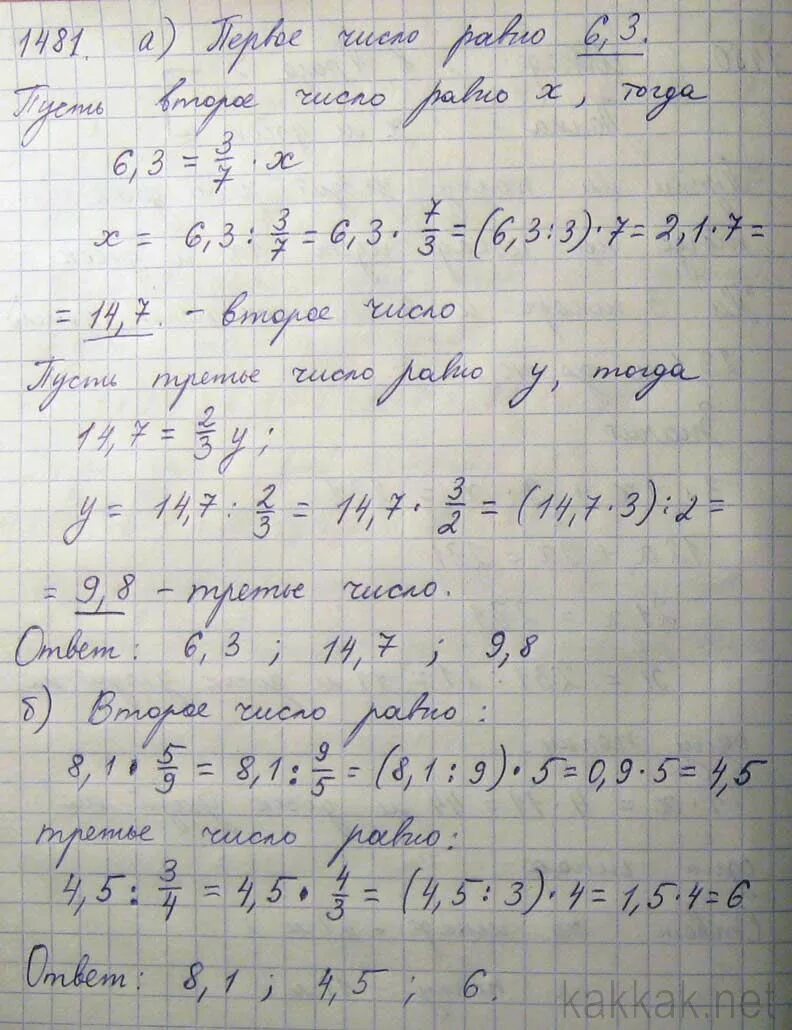 1481. а) Первое число равно 6,3.
Пусть второе число равно x, тогда
6,3 = 3/7 · x
x = 6,3 : 3/7 = 6,3 · 7/3 = (6,3:3) · 7 = 2,1 · 7 =
= 14,7. - второе число
Пусть третье число равно y, тогда
14,7 = 2/3 y;
y = 14,7 : 2/3 = 14,7 · 3/2 = (14,7 · 3) : 2 =
= 9,8 - третье число.
Ответ: 6,3 ; 14,7 ; 9,8
б) Второе число равно:
8,1 · 5/9 = 8,1 : 9/5 = (8,1 : 9) · 5 = 0,9 · 5 = 4,5
третье число равно:
4,5 : 3/4 = 4,5 · 4/3 = (4,5 : 3) · 4 = 1,5 · 4 = 6
Ответ: 8,1 ; 4,5 ; 6.
kakkak.net